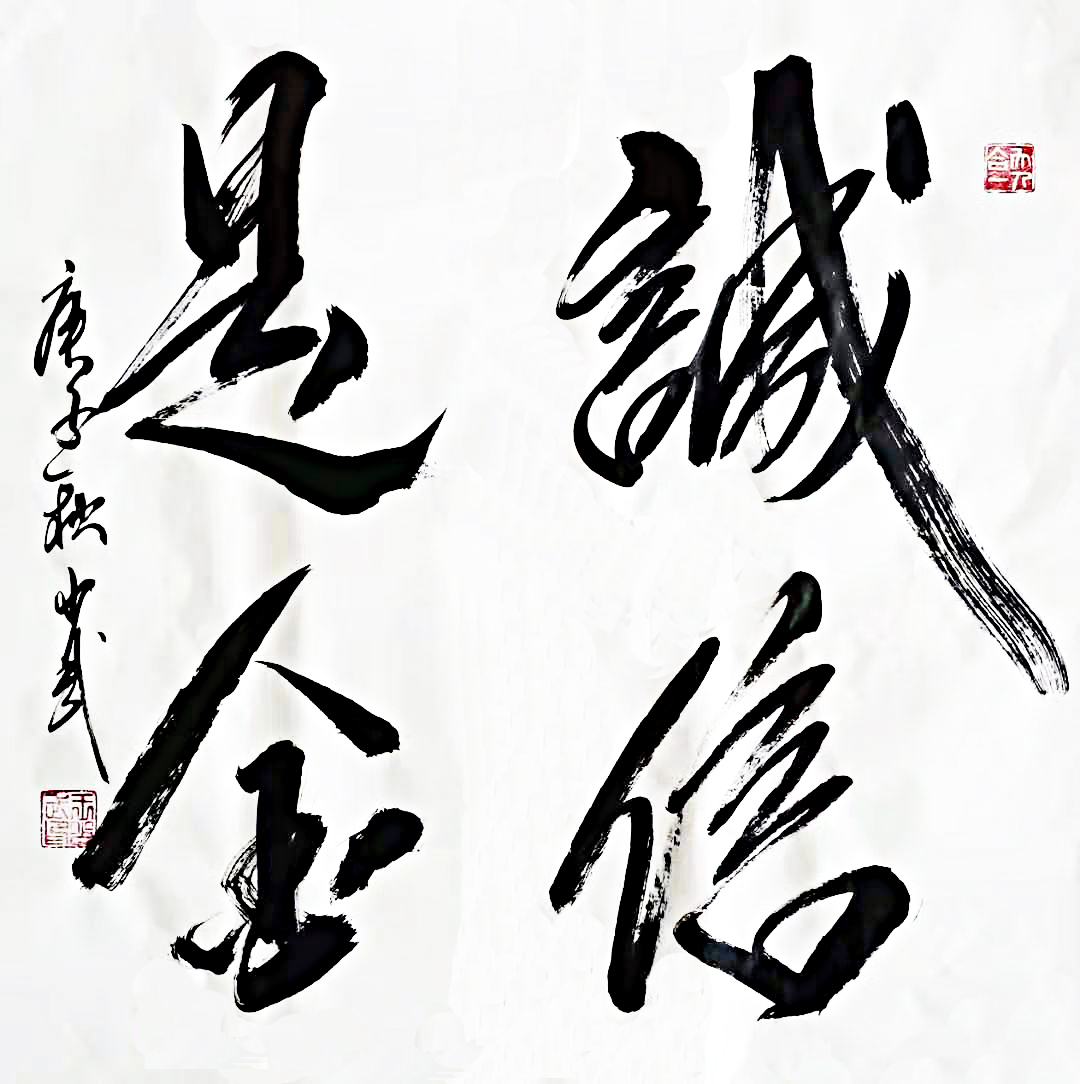 誠信
是金
庚子秋